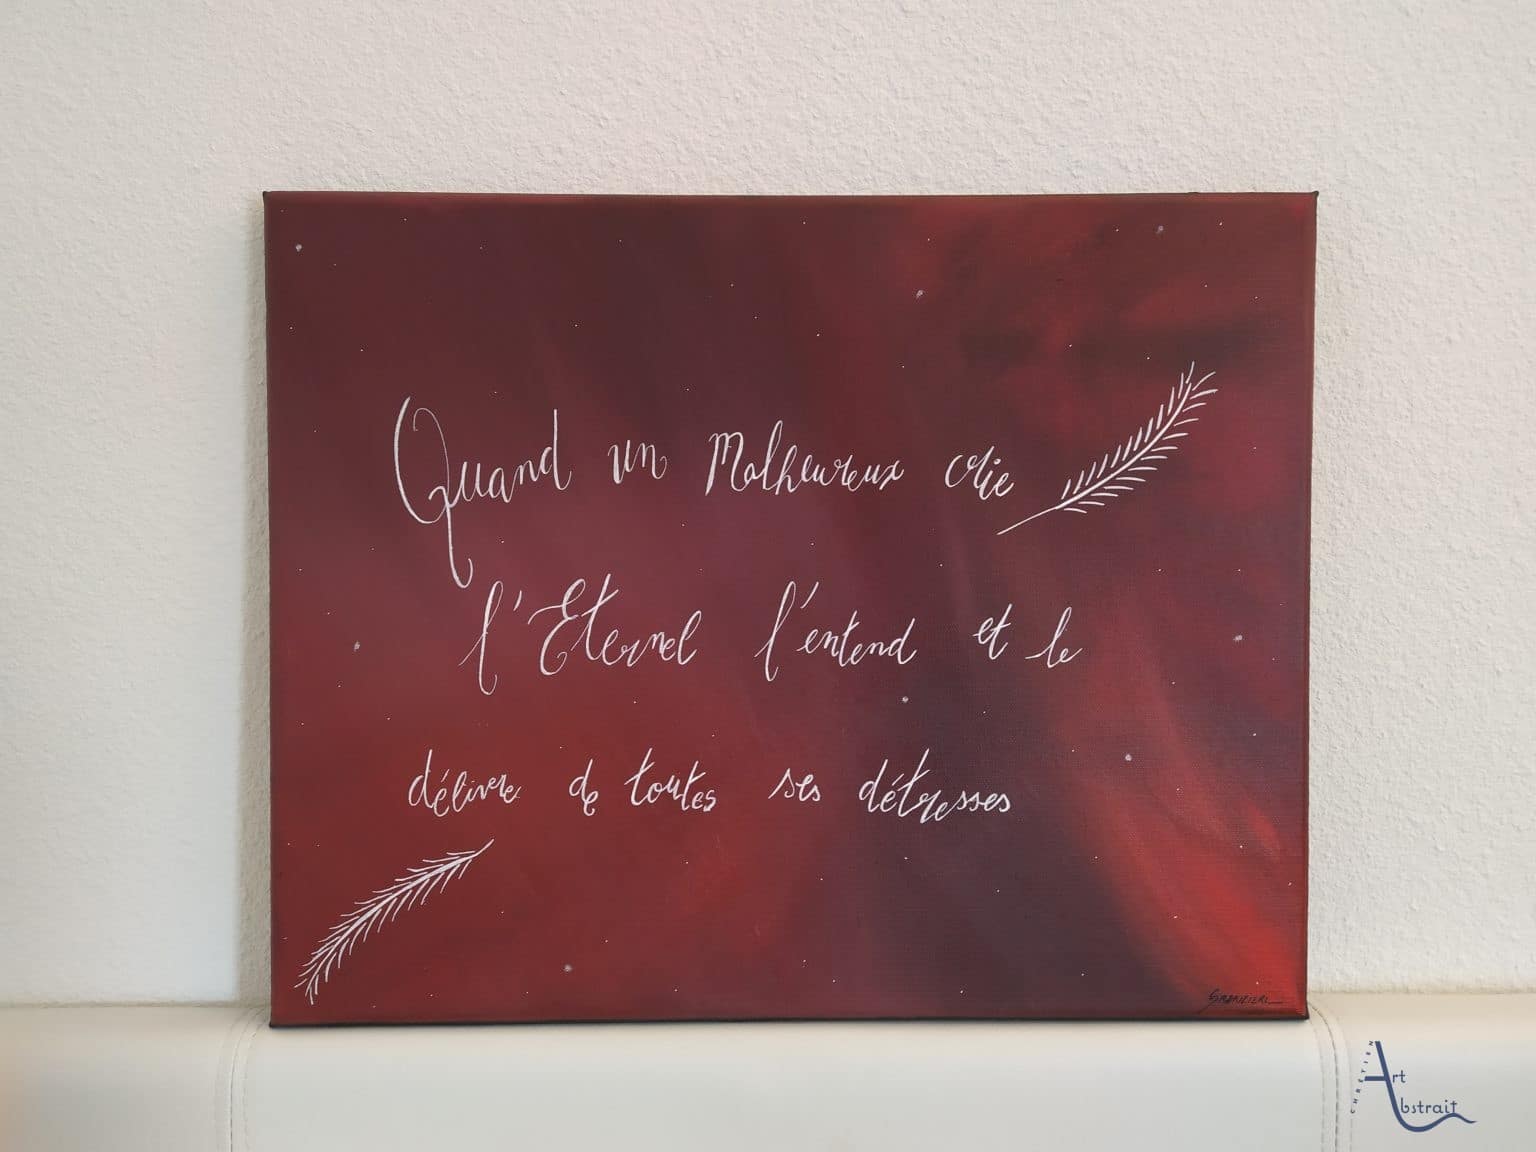 Quand un Malheureux crie
l'Eternel l'entend et le
délivre de toutes ses détresses
CHRETIEN
Art
Abstrait